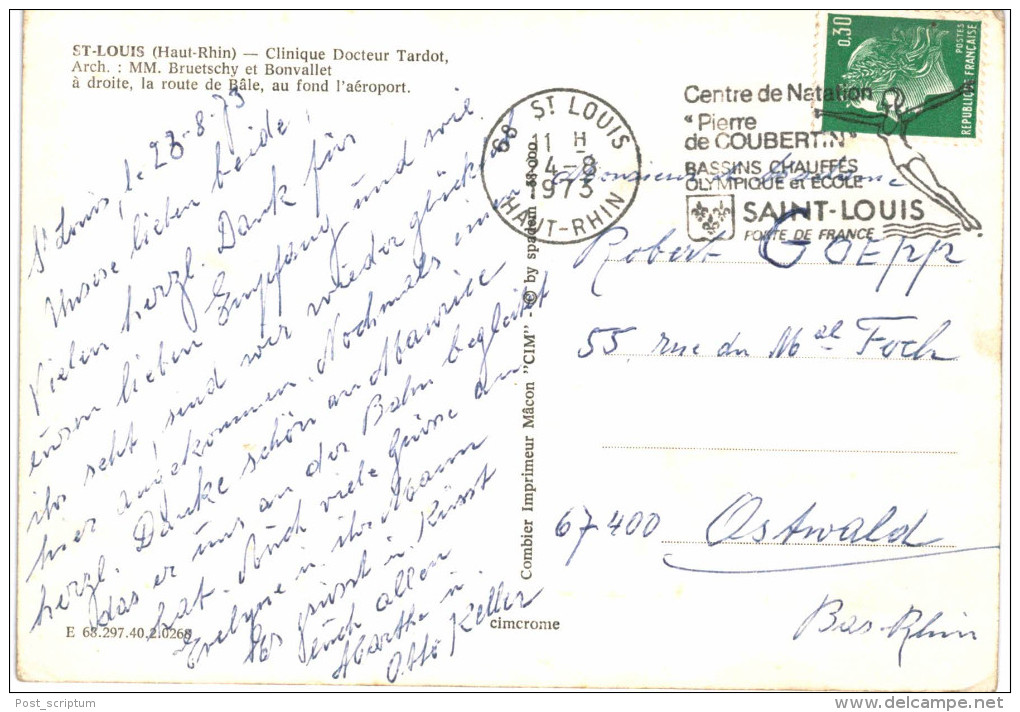 ST-LOUIS (Haut-Rhin) — Clinique Docteur Tardot,
Arch. : MM. Bruetschy et Bonvallet
à droite, la route de Bâle, au fond l'aéroport.
St Louis, le 23-8-73
Unsere lieben beide!
Vielen herzl. Dank für
euren lieben Empfang und wie
ihr seht, sind wir wieder glücklich
hier angekommen. Nochmals
herzl. Danke schön an Maurice
das er uns an der Bahn begleitet
hat. Auch viele Grüsse an
Evelyne u. ihr Mann
Es grüsst u. küsst
Euch allen
Marthe u.
Otto Keller
E 68.297.40.2.0268
Combier Imprimeur Mâcon "CIM" © by spadem
cimcrome
68 ST LOUIS
11 H
4-8
1973
HAUT-RHIN
Centre de Natation
"Pierre
de COUBERTIN"
BASSINS CHAUFFÉS
OLYMPIQUE et ECOLE
SAINT-LOUIS
PORTE DE FRANCE
0,30
POSTES
REPUBLIQUE FRANÇAISE
Monsieur et Madame
Robert GOEPP
55, rue du Mal Foch
67400 Ostwald
Bas-Rhin
Post_scriptum
www.delcampe.net